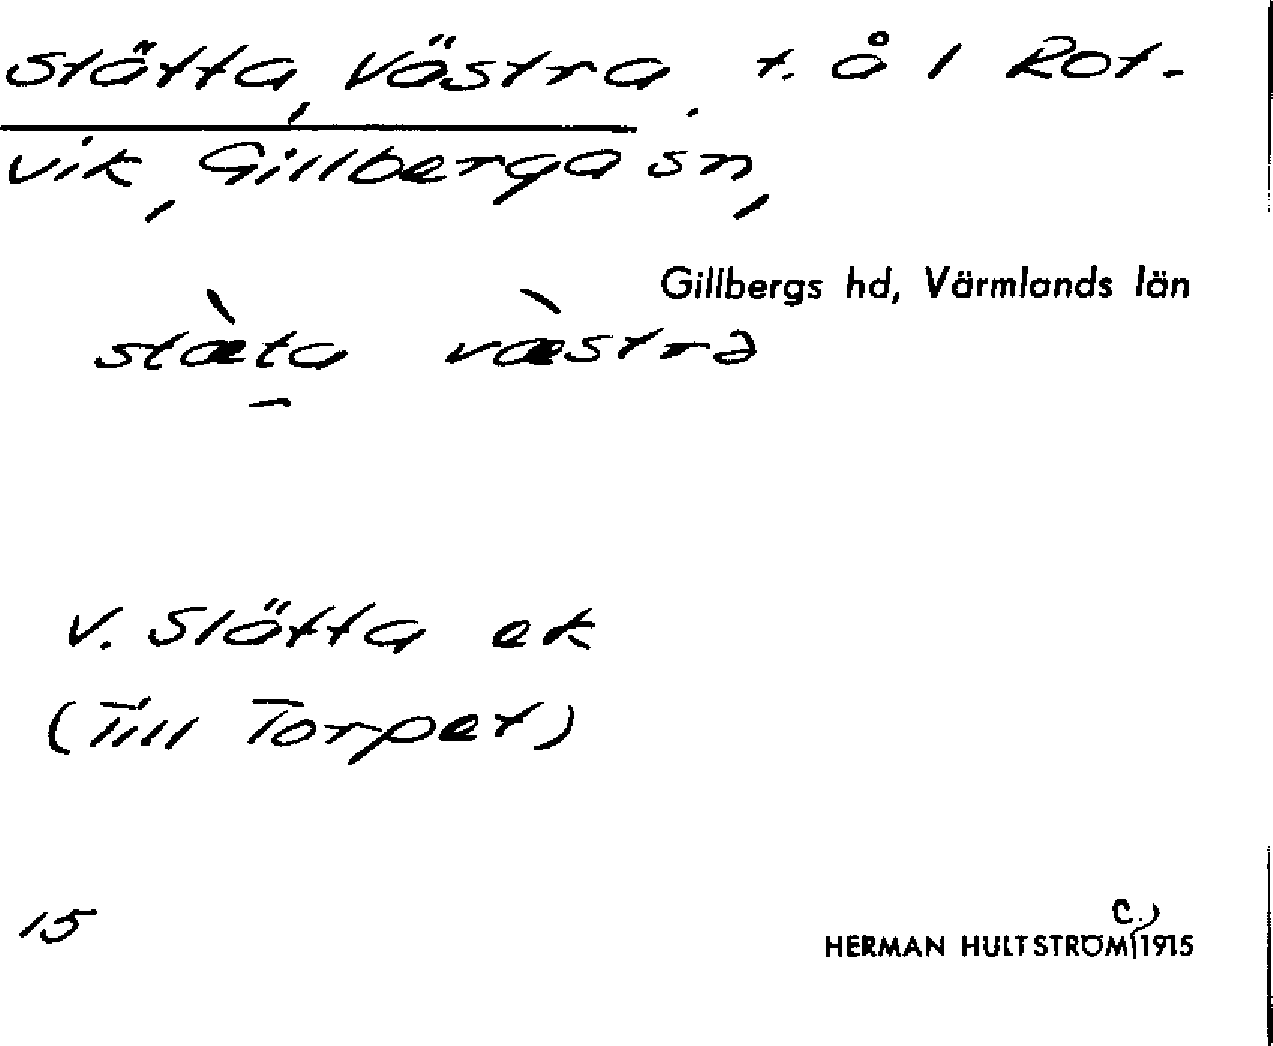 Slätta, Västra t. å 1 Rot-
vik, Gillberga sn,
Gillbergs hd, Värmlands län
slæ̀ta væ̀strə
V. Slätta ek
(Till Torpet)
15
C.
HERMAN HULTSTRÖM 1915